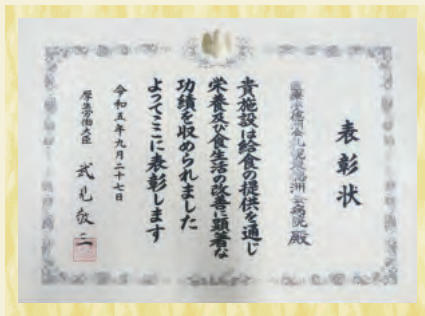 表彰状
医療法人徳洲会札幌徳洲会病院殿
貴施設は給食の提供を通じ
栄養及び食生活の改善に顕著な
功績を収められました
よってここに表彰します
令和五年九月二十七日
厚生労働大臣 武見敬三